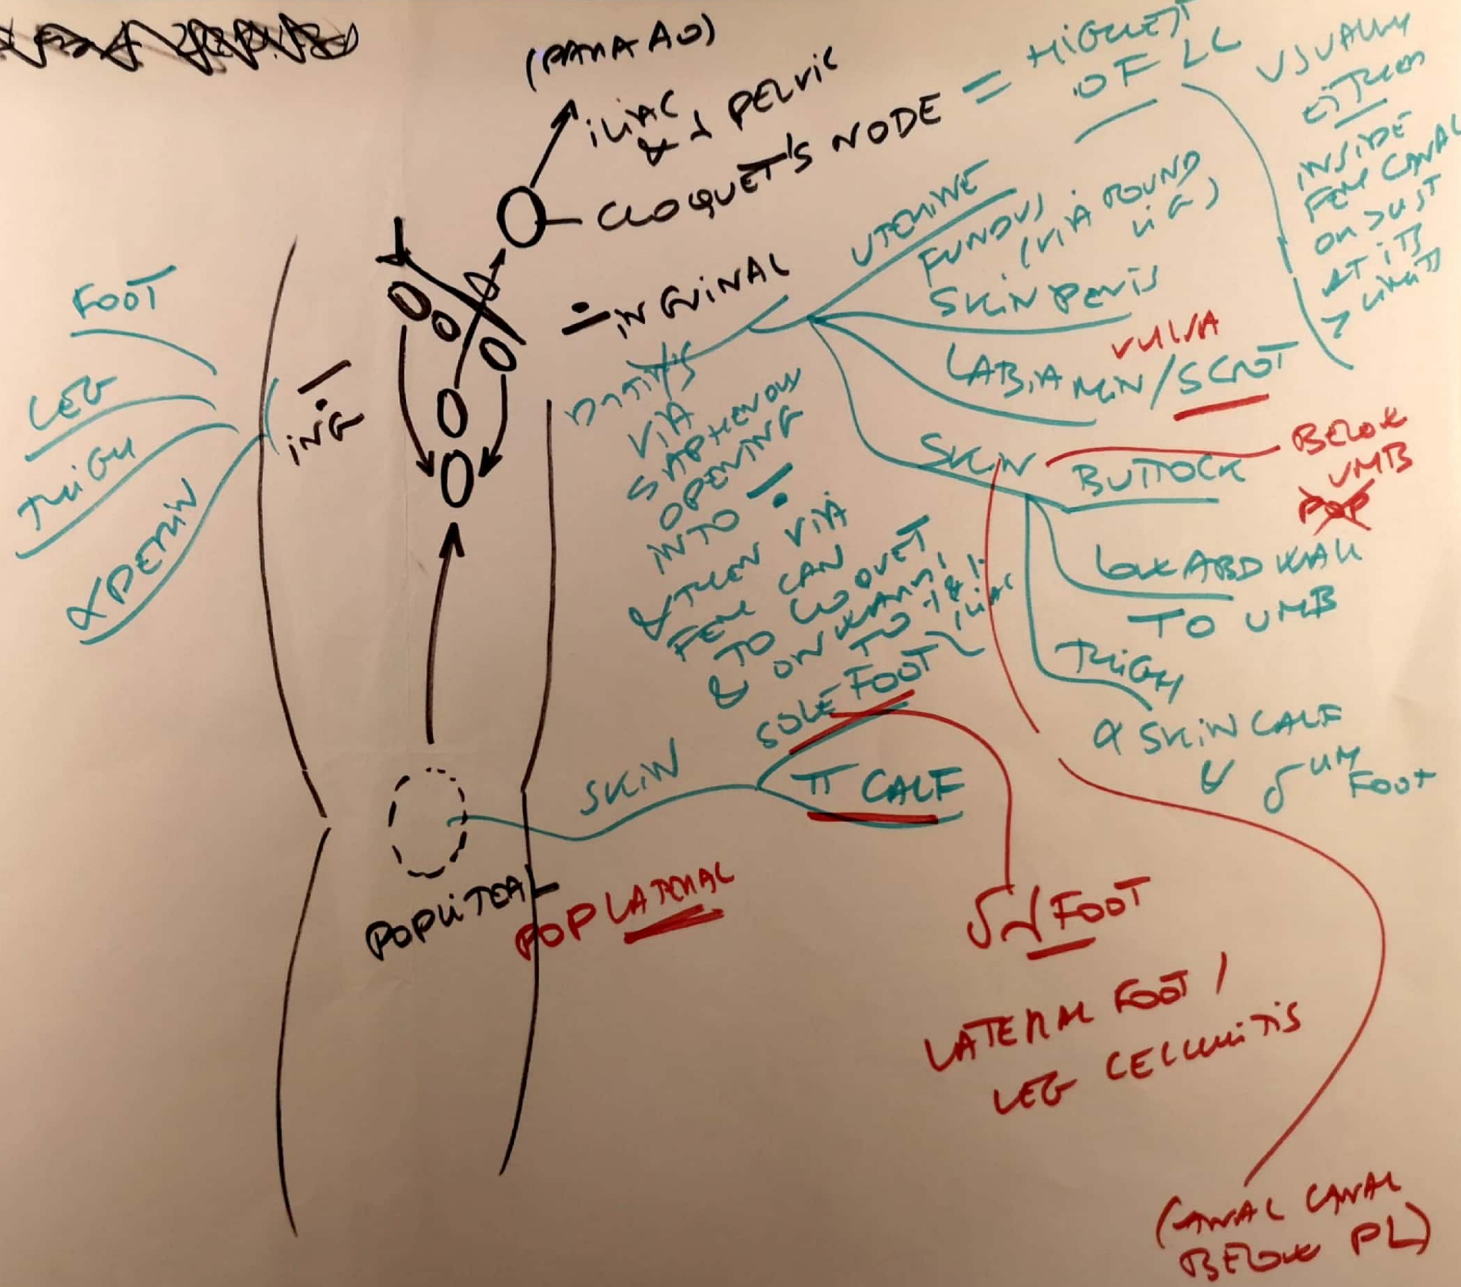 (PARA AO)
ILIAC
& ↓ PELVIC
CLOQUET'S NODE = HIGHEST
OF LL
USUALLY
EITHER
INSIDE
FEM CANAL
OR JUST
AT ITS
LIMITS
INGUINAL
UTERINE
FUNDUS
(VIA ROUND
LIG)
SKIN PENIS
VULVA
LABIA MIN/SCROT
SKIN
BUTTOCK
BELOW
UMB
POP
LOW ABD WALL
TO UMB
THIGH
α SKIN CALF
& δUM
FOOT
FOOT
LEG
THIGH
αPERIN
ING
VIA
SAPHENOUS
OPENING
INTO ÷
& THEN VIA
FEM CAN
TO CLOQUET
& ONWARDS
TO
ILIAC
SOLE FOOT
SKIN
π CALF
POPLITEAL
POP LATERAL
FOOT
LATERAL FOOT /
LEG CELLULITIS
(ANAL CANAL
BELOW PL)